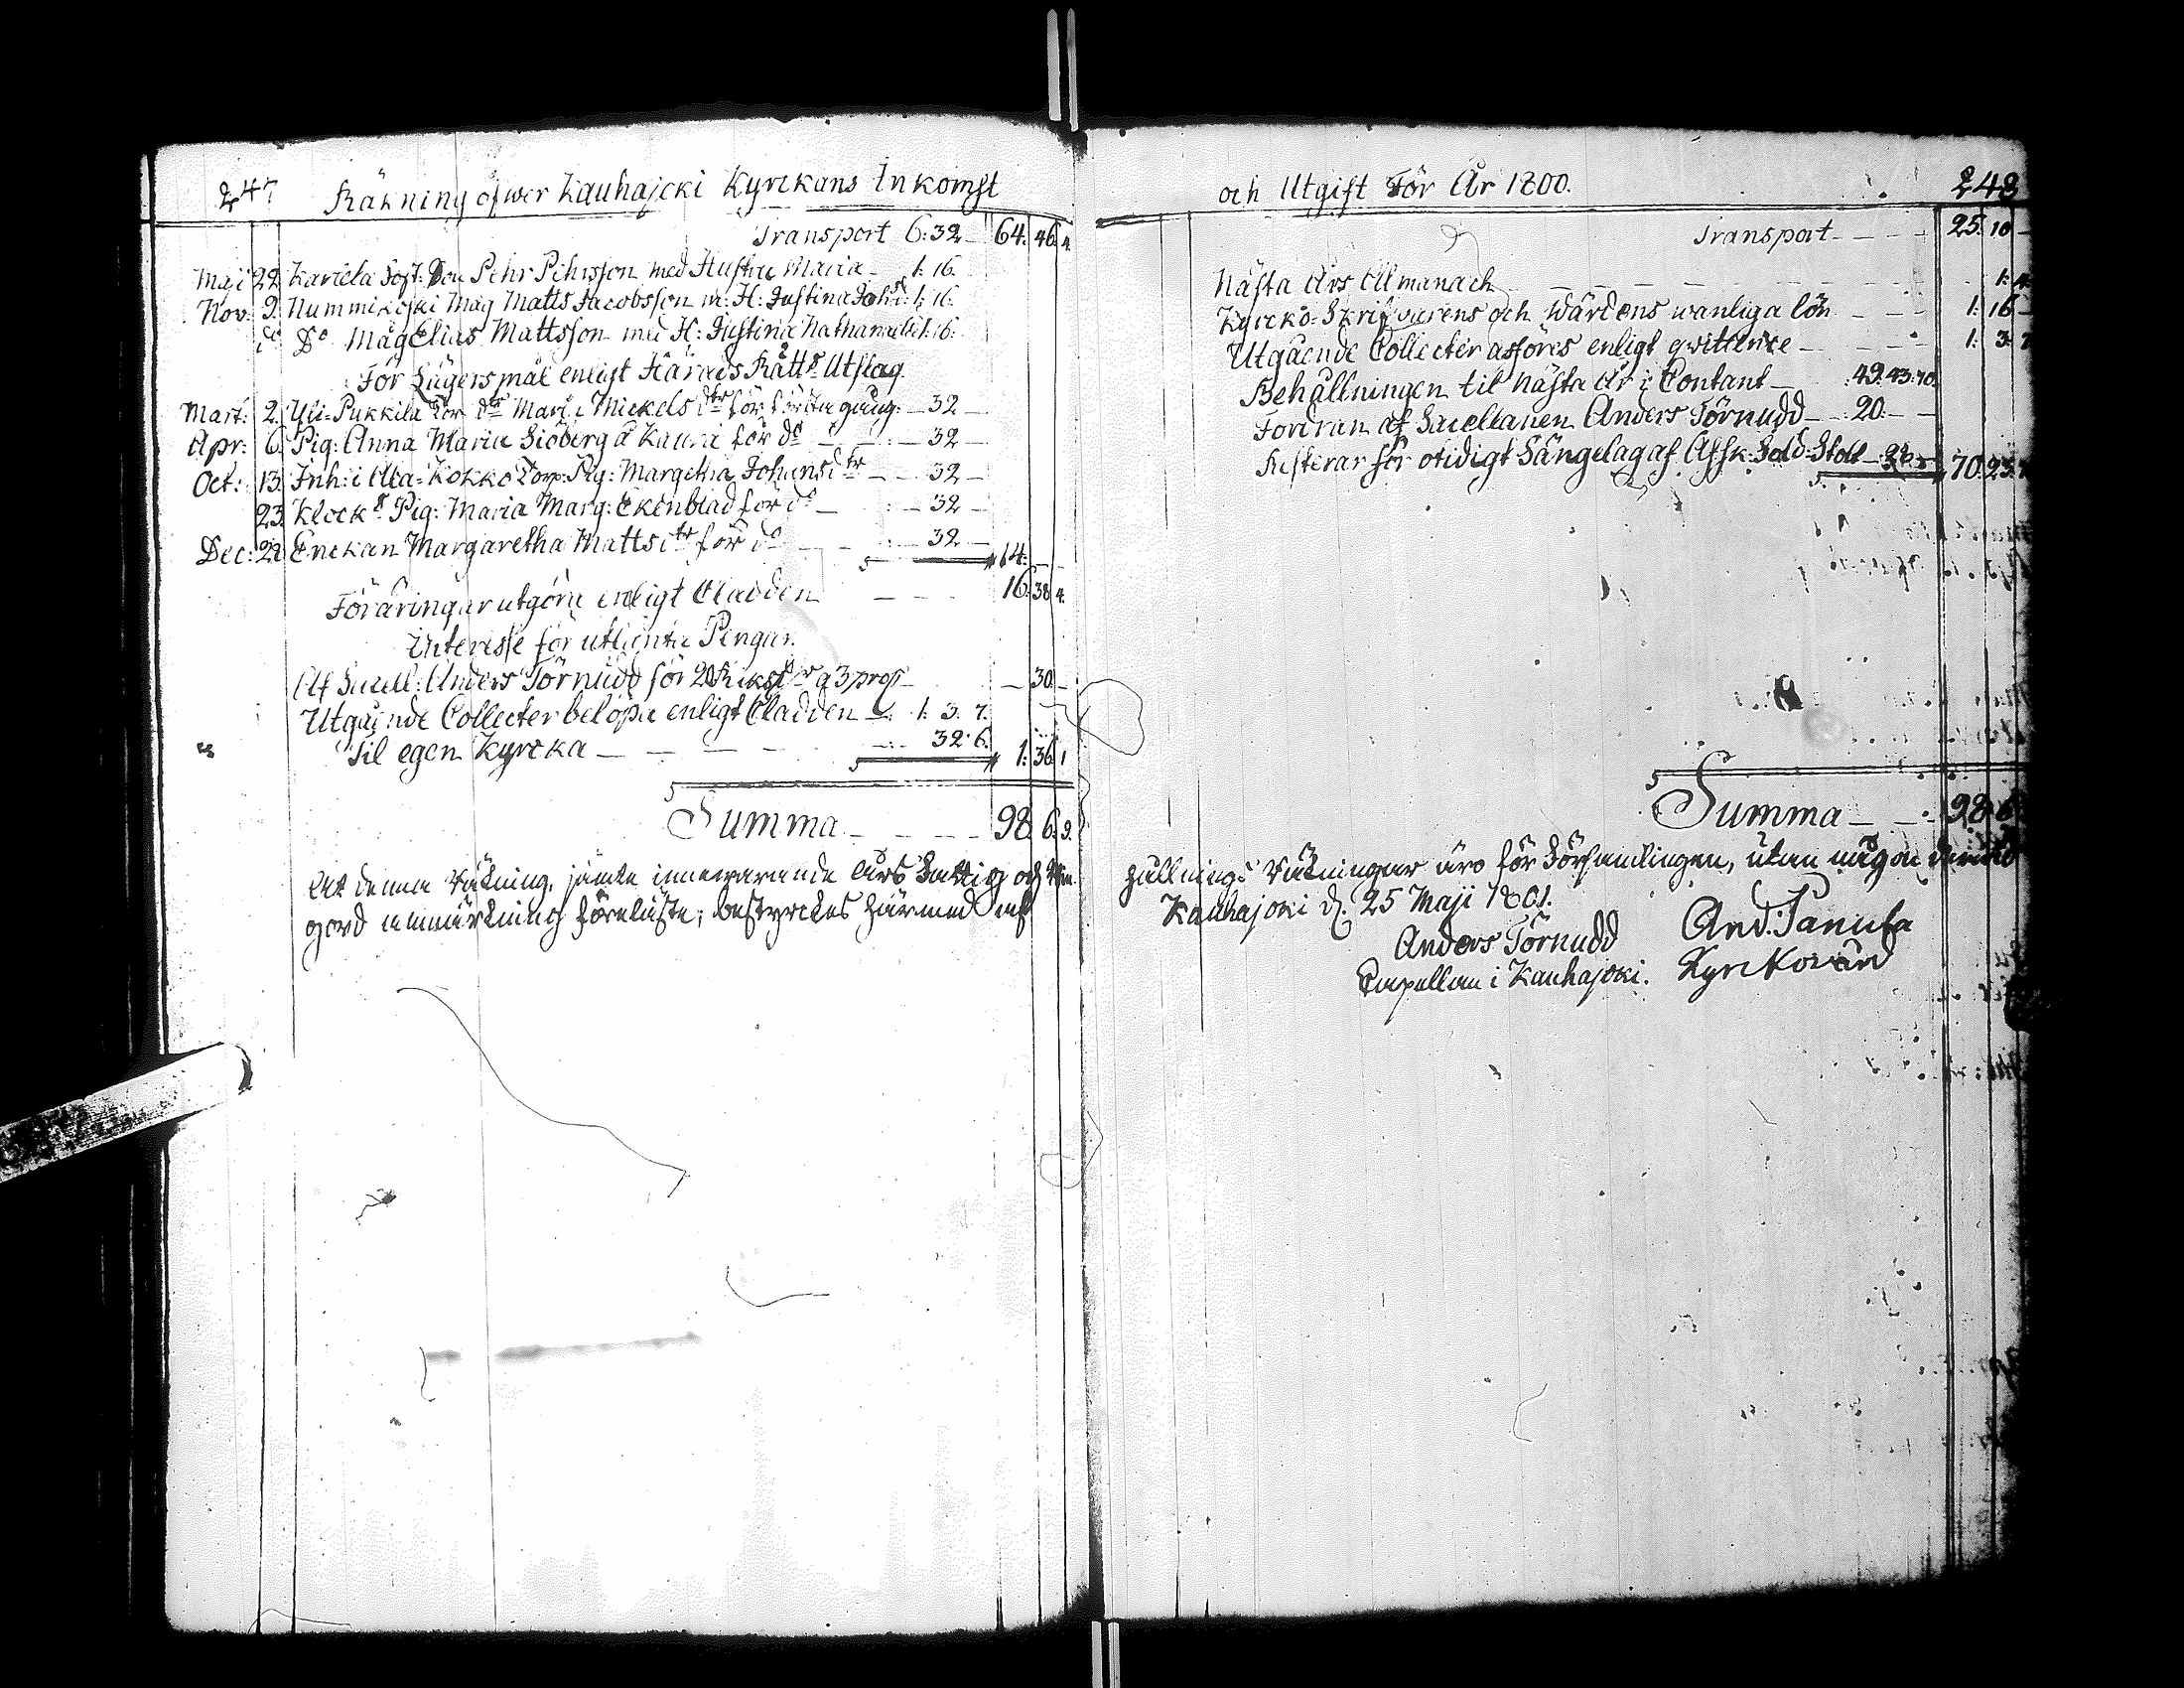 247 Räkning öfwer Kauhajoki Kyrckans Inkomst
Transport 6:32 64. 46. 4.
Maji 22 Karicla Pehr Pehrsson med Hustru Maria 1:16.
Nov: 9. Nummikoski Måg Matts Jacobsson m: H: Justina Joh: 1:16.
do Do Måg Elias Mattsson med H: Justina 1:16.
För Lägersmål enligt Härads Rätts Utslag
Mart: 2. Yli-Pukkila Mar: Mickelsdtr för första gång 32
Apr: 6. Pig: Anna Maria Siöberg å Kaura för do 32
Oct: 13. Inh: i Ala-Kokko Torp: Pig: Margetha Johansdtr 32
23. Klock: Pig: Maria Marg: Ekenblad för do 32
Dec: 21 Enckan Margaretha Mattsdtr för do 32
14.
Föräringar utgöra enligt Cladden 16. 38. 4.
Interesse för utlänta Pengar.
Af Sacell: Anders Törnudd för 20 Riksdr a 3 pro 30.
Utgående Collecter belöpa enligt Cladden 1. 3. 7.
Til egen Kyrcka 32. 6. 1. 36. 1
Summa 98. 6. 9.
At denna Räkning, jämte innewarande års Fattig och
gord anmärckning föreläste, bestyrckes härmed
och Utgift För År 1800. 248
Transport 25. 10
Nästa års Almanach 1. 4
Kyrcko-Skrifvarens och Wärdens wanliga lön 1. 16
Utgående Collecter afföres enligt qvittence 1. 3. 7
Behållningen til nästa år i Contant 49. 43. 10.
Fordran af Sacellanen Anders Törnudd 20.
Resterar för otidigt Sängelag af Afsk: Sold: Stoll 70. 23.
Summa 98. 6
hållnings Räkningar äro för Församlingen, utan någon
Kauhajoki d. 25 Maji 1801.
Anders Törnudd And: Panula
Capellan i Kauhajoki. Kyrckovärd